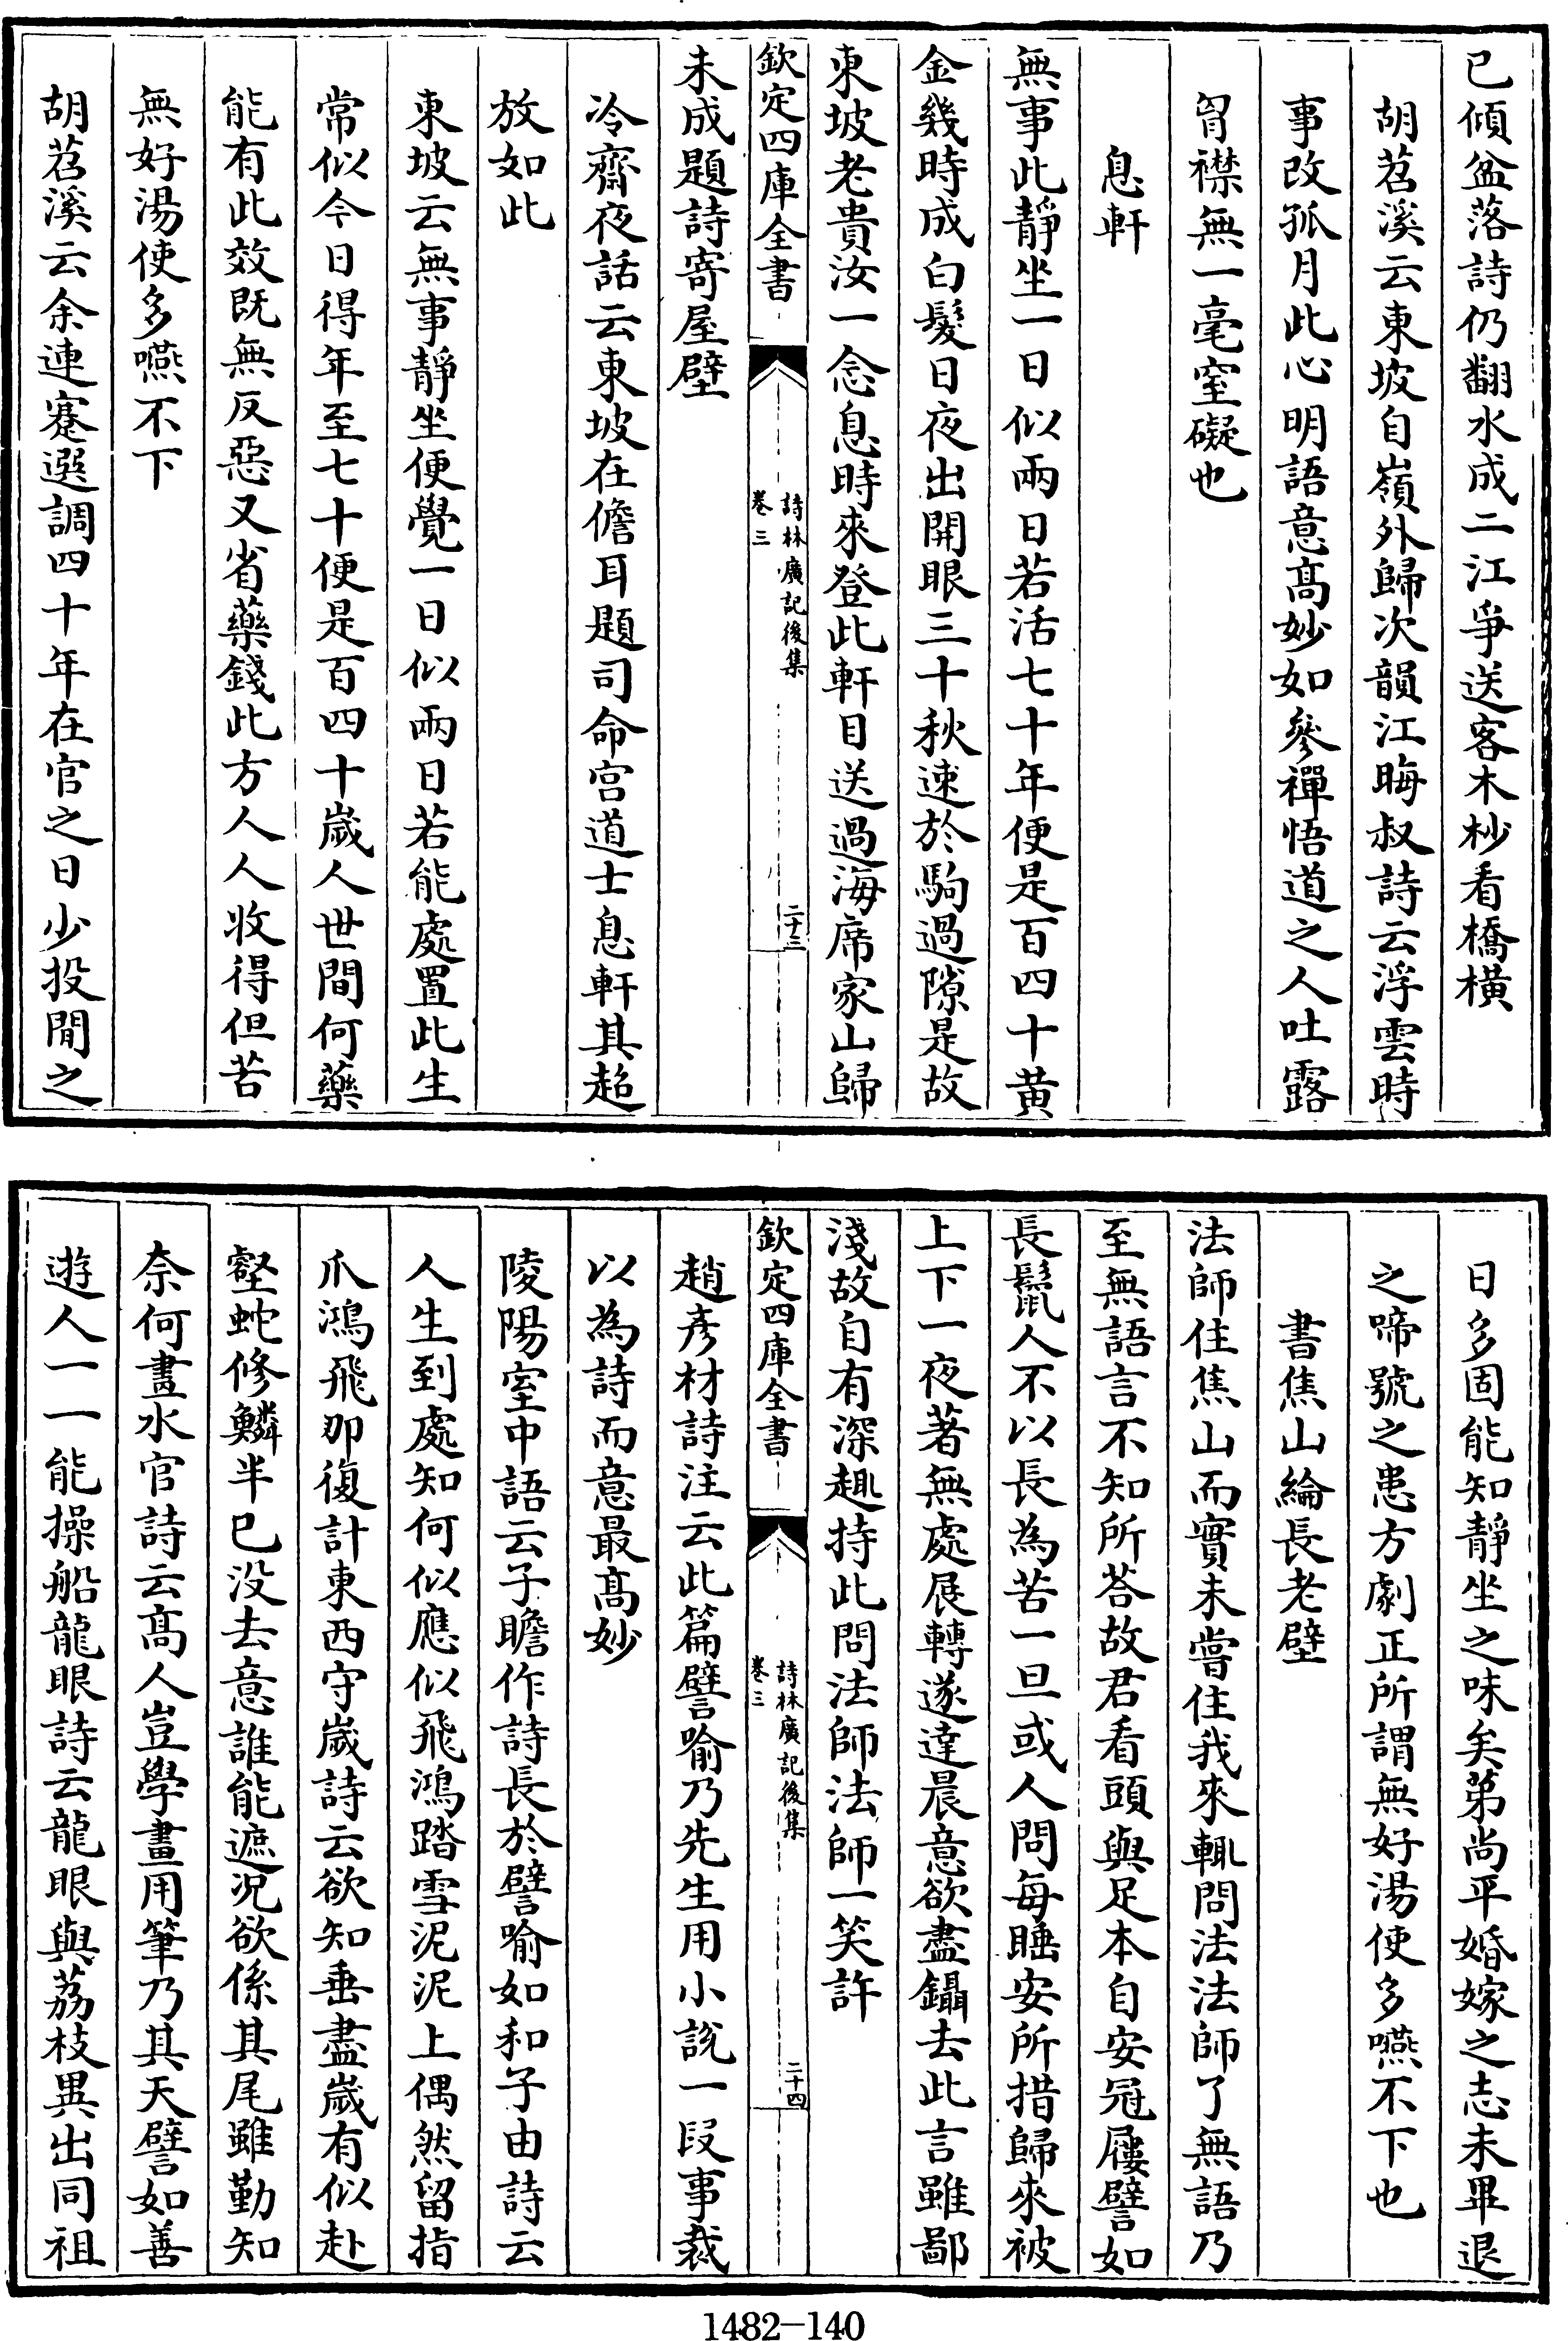 已傾盆落詩仍翻水成二江爭送客木杪看橋橫
胡苕溪云東坡自嶺外歸次韻江晦叔詩云浮雲時
事改孤月此心明語意髙妙如參禪悟道之人吐露
胷襟無一毫窒礙也
息軒
無事此靜坐一日似兩日若活七十年便是百四十黄
金幾時成白髮日夜出開眼三十秋速於駒過隙是故
東坡老貴汝一念息時來登此軒目送過海席家山歸
欽定四庫全書
詩林廣記後集
卷三
二十三
未成題詩寄屋壁
冷齋夜話云東坡在儋耳題司命宫道士息軒其超
放如此
東坡云無事靜坐便覺一日似兩日若能處置此生
常似今日得年至七十便是百四十歲人世間何藥
能有此效既無反惡又省藥錢此方人人收得但苦
無好湯使多嚥不下
胡苕溪云余連蹇選調四十年在官之日少投閒之
日多固能知靜坐之味矣第尚平婚嫁之志未畢退
之啼號之患方劇正所謂無好湯使多嚥不下也
書焦山綸長老壁
法師住焦山而實未嘗住我來輒問法法師了無語乃
至無語言不知所荅故君看頭與足本自安冠屨譬如
長鬛人不以長為苦一旦或人問每睡安所措歸來被
上下一夜著無處展轉遂達晨意欲盡鑷去此言雖鄙
淺故自有深趣持此問法師法師一笑許
欽定四庫全書
詩林廣記後集
卷三
二十四
趙彥材詩注云此篇譬喻乃先生用小說一段事裁
以為詩而意最髙妙
陵陽室中語云子瞻作詩長於譬喻如和子由詩云
人生到處知何似應似飛鴻踏雪泥泥上偶然留指
爪鴻飛那復計東西守歲詩云欲知垂盡歲有似赴
壑蛇修鱗半已没去意誰能遮况欲係其尾雖勤知
奈何畫水官詩云髙人豈學畫用筆乃其天譬如善
遊人一一能操船龍眼詩云龍眼與荔枝異出同祖
1482-140